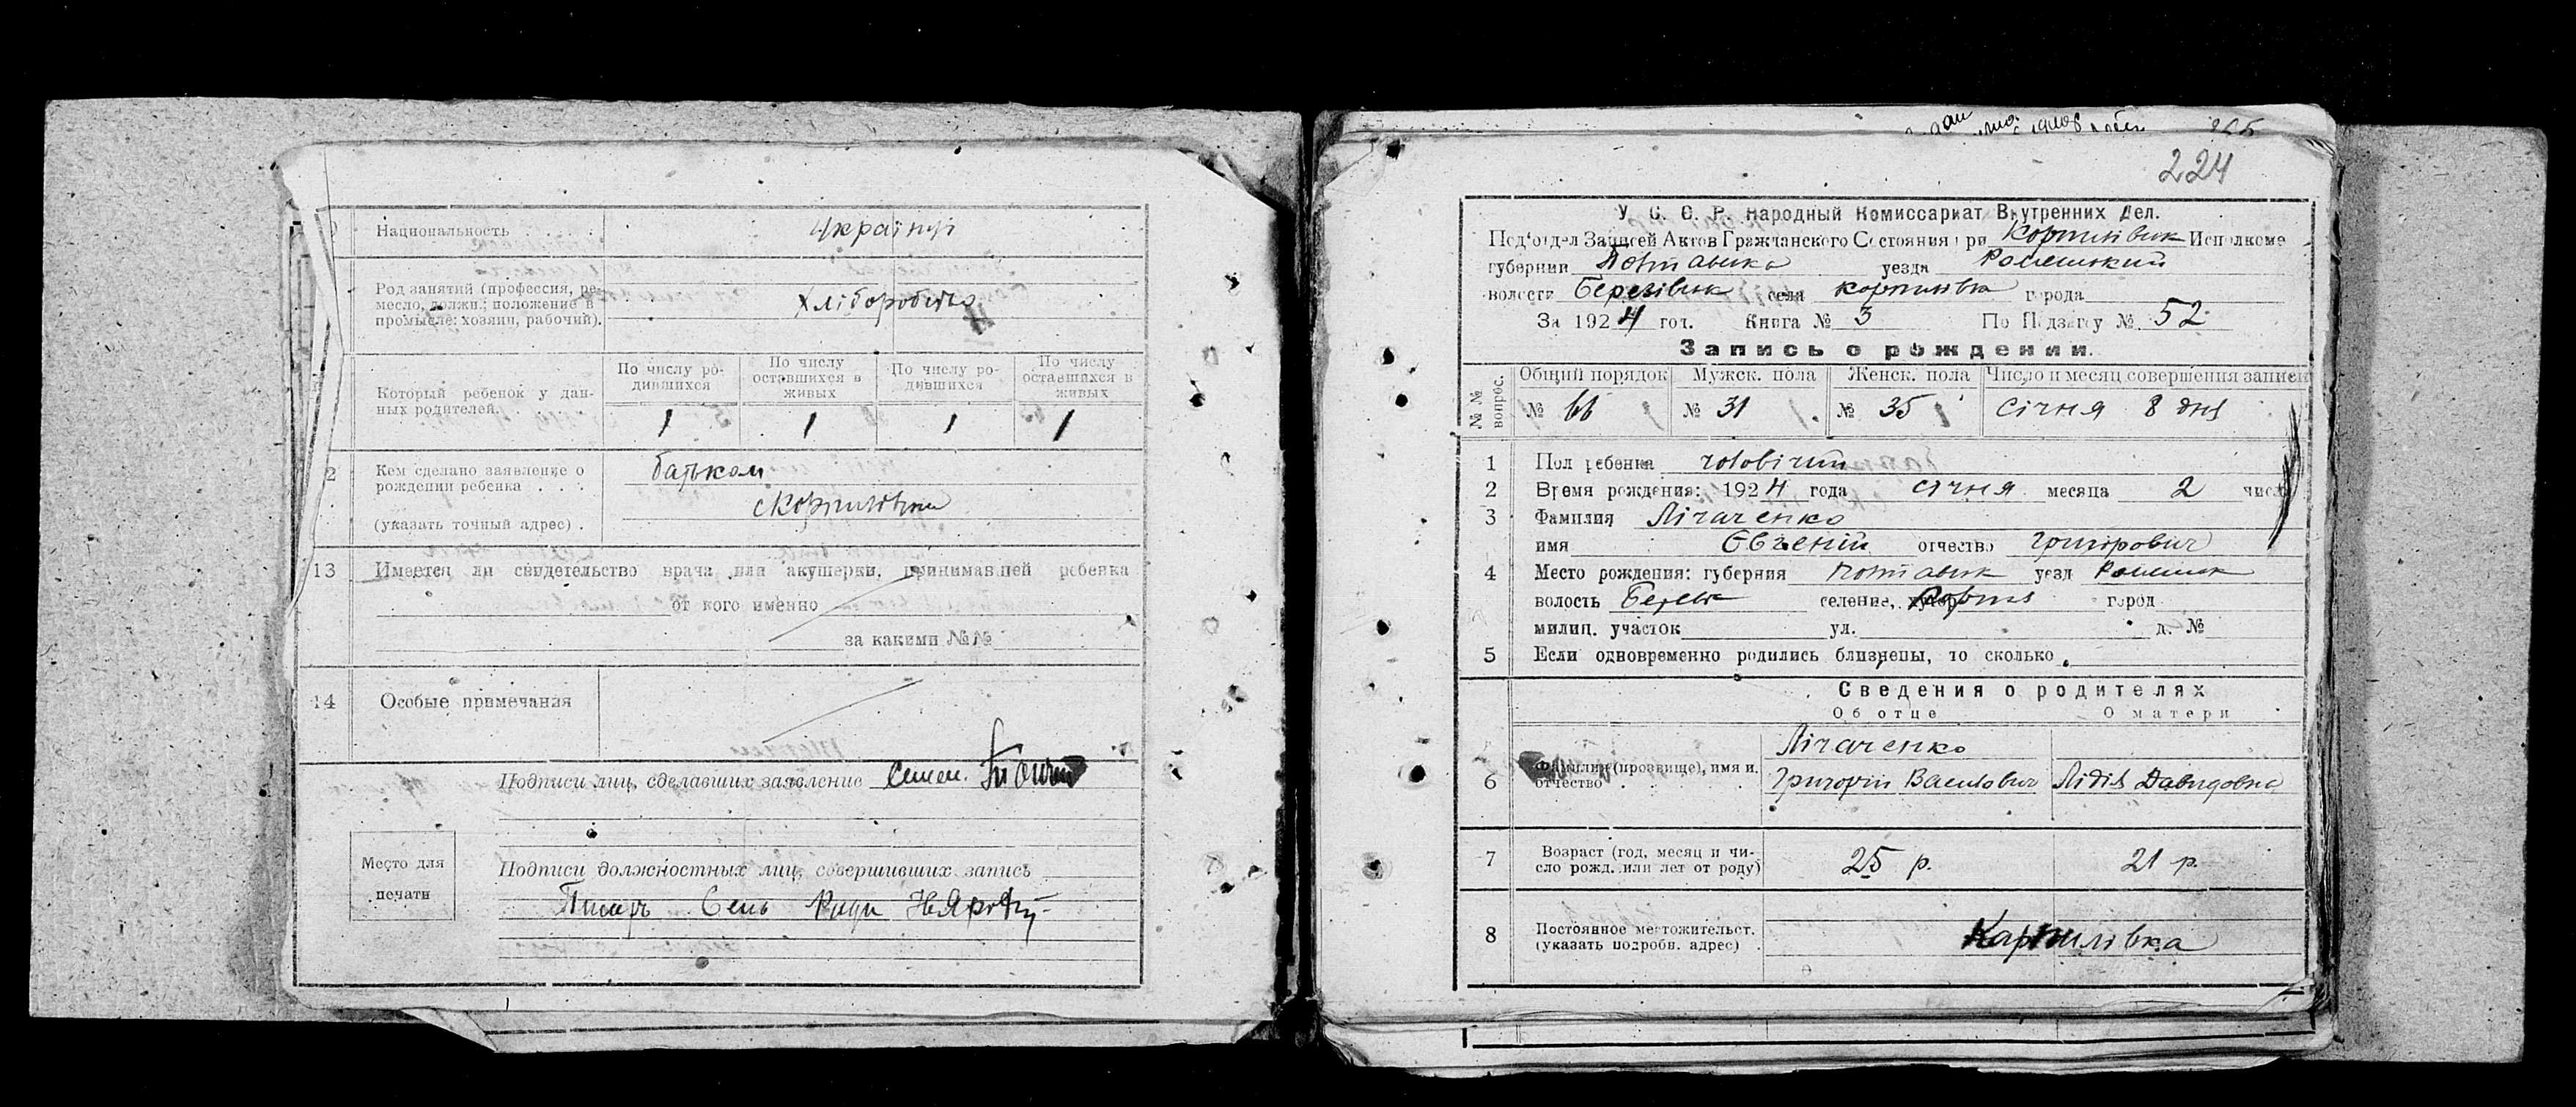 Национальность . . . . . українці
Род занятий (профессия, ре-
месло, должн.; положение в
промысле: хозяин, рабочий).
Хліборобство
По числу ро-
дившихся
По числу
оставшихся в
живых
По числу ро-
дившихся
По числу
оставшихся в
живых
Который ребенок у дан-
ных родителей.
1 1 1 1
2 Кем сделано заявление о
рождении ребенка . . .
(указать точный адрес) .
батьком
13 Имеется ли свидетельство врача или акушерки, принимавшей ребенка
от кого именно
за какими №№
14 Особые примечания
Подписи лиц, сделавших заявление
Место для
печати
Подписи должностных лиц, совершивших запись
224
У. С. С. Р. Народный Комиссариат Внутренних Дел.
Под'отдел Записей Актов Гражданского Состояния при Исполкоме
губернии Полтавська уезда Роменський
волости Березівськ села города
За 1924 год. Книга № 3 По Подзагсу № 52
Запись о рождении.
№№ вопрос.
Общий порядок Мужск. пола Женск. пола Число и месяц совершения записи
№ 66 № 31 № 35 січня 8 дня
1 Пол ребенка
2 Время рождения: 1924 года січня месяца 2 числ
3 Фамилия Лігаченко
имя Євгеній отчество Григорович
4 Место рождения: губерния Полтавськ уезд Роменськ
волость селение, хутор город
милиц. участок ул. д. №
5 Если одновременно родились близнецы, то сколько
Сведения о родителях
Об отце О матери
6 Фамилия (прозвище), имя и
отчество
Лігаченко
Григорій Васильович Лідія Давидовна
7 Возраст (год, месяц и чи-
сло рожд. или лет от роду)
25 р. 21 р.
8 Постоянное местожительст.
(указать подробн. адрес) .
Карпилівка